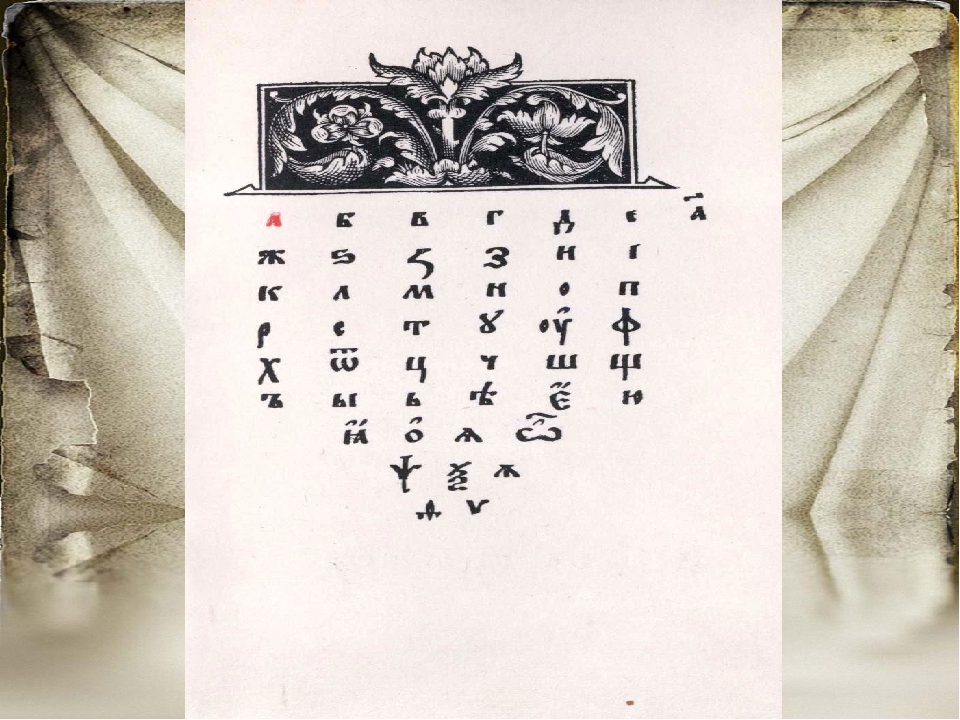 а б в г д е а҃
ж ѕ ꙁ з н і
к л м н о п
р с т ꙋ оу҆ ф
х ѿ ц ч ш щ
ъ ы ь ѣ є҆́ ю
ꙗ҆́ о҆ ѧ ѽ
ѱ ѯ ѫ
ѳ ѵ